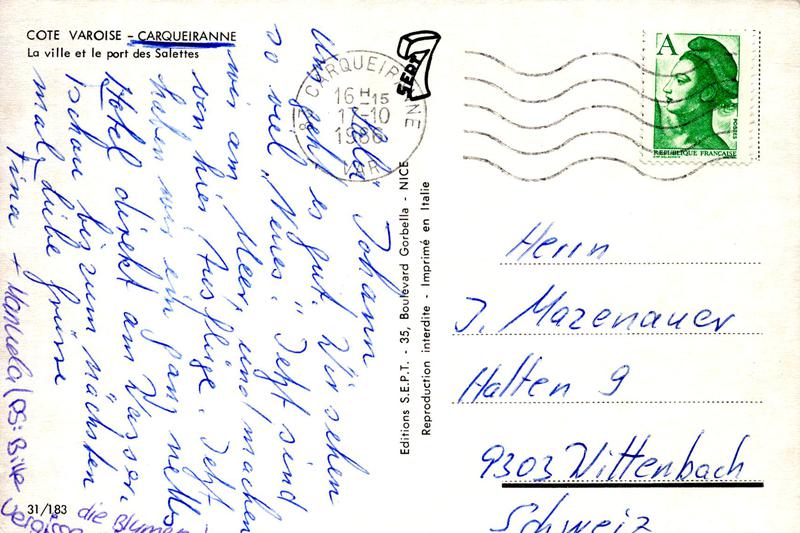 COTE VAROISE - CARQUEIRANNE
La ville et le port des Salettes
Salü Johann
Uns geht es gut. Wir sehen
so viel „Neues." Jetzt sind
wir am Meer, und machen
von hier Ausflüge. Jetzt
haben wir ein ganz nettes
Hotel direkt am Wasser.
Tschau bis zum nächsten
mal. Liebe Grüsse
Tina + Manuela (PS: Bitte
die Blumen
31/183
CARQUEIRANNE
16H15
17-10
1986
VAR
SEPT
Editions S.E.P.T. - 35, Boulevard Gorbella - NICE
Reproduction interdite - Imprimé en Italie
A
POSTES
REPUBLIQUE FRANÇAISE
Herrn
J. Mazenauer
Halten 9
9303 Wittenbach
Schweiz